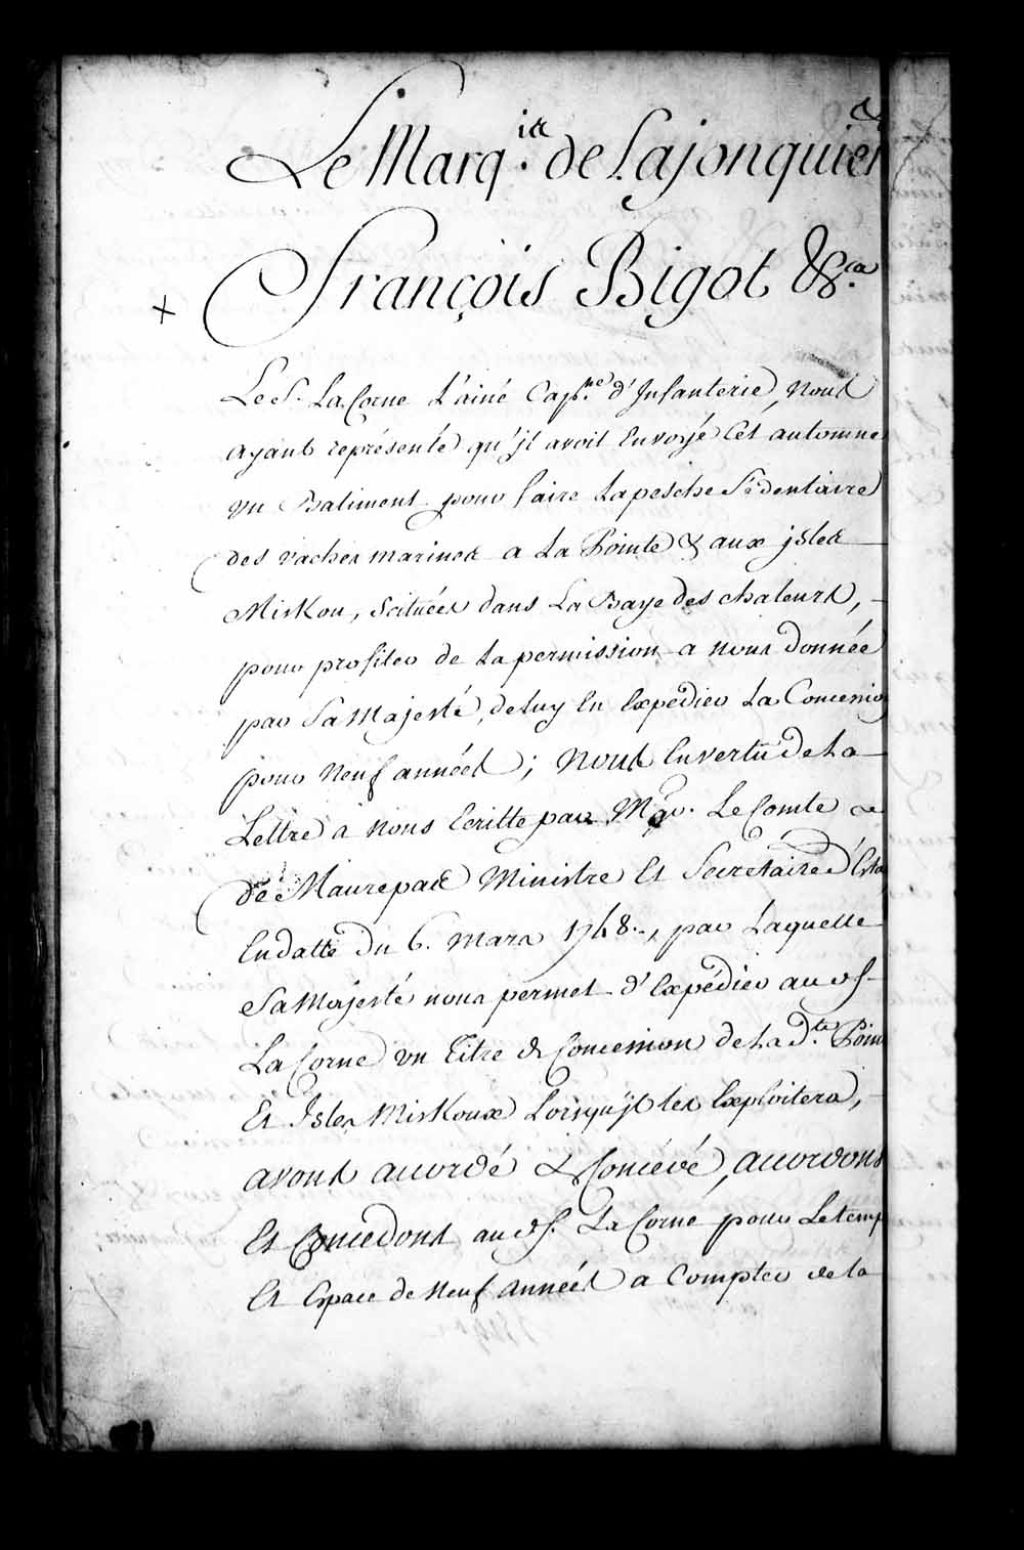 Le Marq.is de Lajonquier
François Bigot &c.a
Le S.r La Corne L'ainé Cap.ne d'Infanterie, Nous
ayant représenté qu'jl avoit Envoyé Cet automne
un Batiment pour faire La pesche Sédentaire
des vaches marines a La Pointe & aux jsles
Miskou, Scituées dans La Baye des chaleurs,
pour profiter de La permission a nous donnée
par Sa Majesté, de luy En Expédier La Concession
pour Neuf années; Nous En vertu de La
Lettre a nous Ecritte par Mgr. Le Comte
de Maurepas Ministre Et Secretaire d'Eta
En datte du 6. mars 1748., par Laquelle
Sa Majesté nous permet d'Expédier au d. S.
La Corne un Titre de Concession de La d.te Poin
Et Isles Miskoux Lorsqu'jl les Exploitera,
avons accordé & Concédé, accordons
Et Concedons au d. S. La Corne pour Le temp
Et Espace de Neuf années a Compter de la